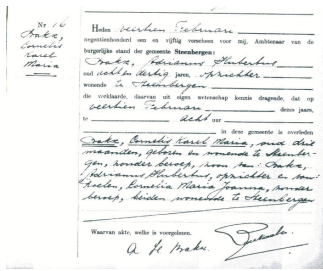 Nr 16
Brakx,
Cornelis
Karel
Maria
Heden veertien Februari
negentienhonderd een en vijftig verscheen voor mij, Ambtenaar van de
burgerlijke stand der gemeente Steenbergen:
Brakx, Adrianus Hubertus
oud acht en dertig jaren, opzichter
wonende te Steenbergen
die verklaarde, daarvan uit eigen wetenschap kennis dragende, dat op
veertien Februari dezes jaars,
te acht uur
in deze gemeente is overleden
Brakx, Cornelis Karel Maria, oud drie
maanden, geboren en wonende te Steenber-
gen, zonder beroep, zoon van: Brakx,
Adrianus Hubertus, opzichter en van:
Cornelia Maria Joanna, zonder
beroep, beiden wonende te Steenbergen
Waarvan akte, welke is voorgelezen.